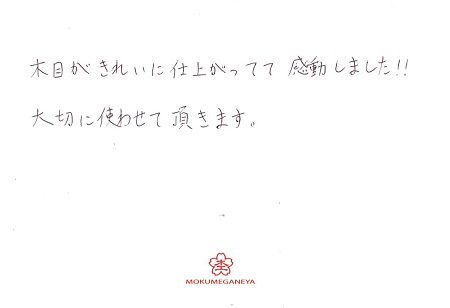 木目がきれいに仕上がってて 感動しました!!
大切に使わせて頂きます。
MOKUMEGANEYA